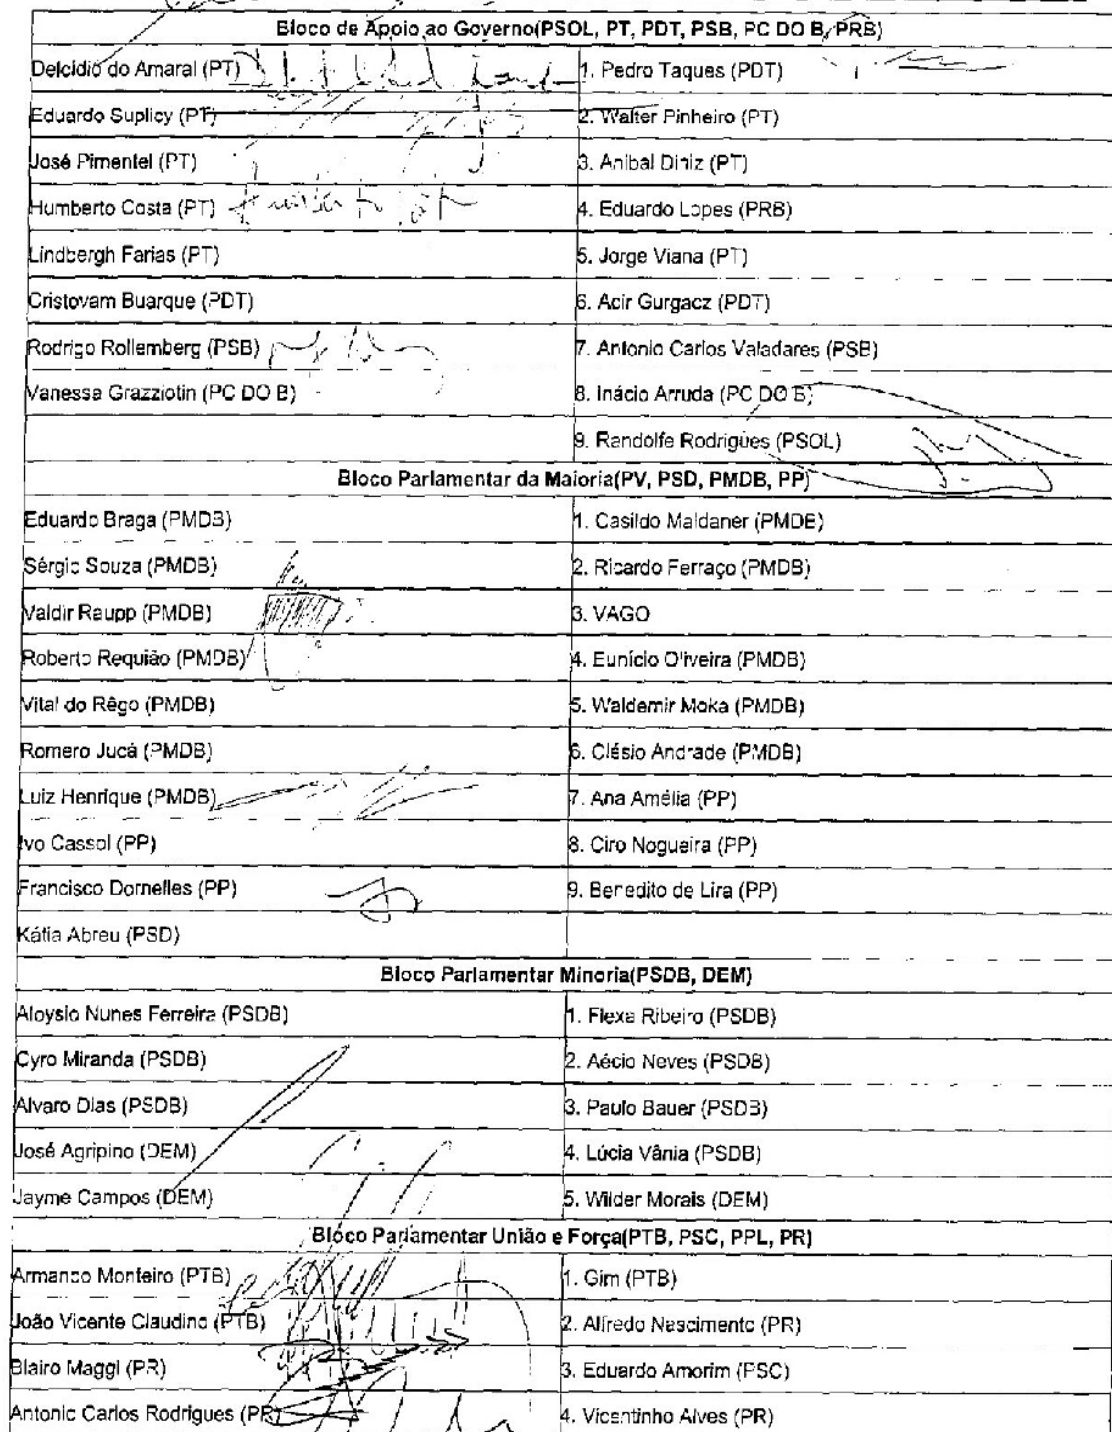 Bloco de Apoio ao Governo(PSOL, PT, PDT, PSB, PC DO B, PRB)
Delcídio do Amaral (PT) 1. Pedro Taques (PDT)
Eduardo Suplicy (PT) 2. Walter Pinheiro (PT)
José Pimentel (PT) 3. Anibal Diniz (PT)
Humberto Costa (PT) 4. Eduardo Lopes (PRB)
Lindbergh Farias (PT) 5. Jorge Viana (PT)
Cristovam Buarque (PDT) 6. Acir Gurgacz (PDT)
Rodrigo Rollemberg (PSB) 7. Antonio Carlos Valadares (PSB)
Vanessa Grazziotin (PC DO B) 8. Inácio Arruda (PC DO B)
9. Randolfe Rodrigues (PSOL)
Bloco Parlamentar da Maioria(PV, PSD, PMDB, PP)
Eduardo Braga (PMDB) 1. Casildo Maldaner (PMDB)
Sérgio Souza (PMDB) 2. Ricardo Ferraço (PMDB)
Valdir Raupp (PMDB) 3. VAGO
Roberto Requião (PMDB) 4. Eunício Oliveira (PMDB)
Vital do Rêgo (PMDB) 5. Waldemir Moka (PMDB)
Romero Jucá (PMDB) 6. Clésio Andrade (PMDB)
Luiz Henrique (PMDB) 7. Ana Amélia (PP)
Ivo Cassol (PP) 8. Ciro Nogueira (PP)
Francisco Dornelles (PP) 9. Benedito de Lira (PP)
Kátia Abreu (PSD)
Bloco Parlamentar Minoria(PSDB, DEM)
Aloysio Nunes Ferreira (PSDB) 1. Flexa Ribeiro (PSDB)
Cyro Miranda (PSDB) 2. Aécio Neves (PSDB)
Alvaro Dias (PSDB) 3. Paulo Bauer (PSDB)
José Agripino (DEM) 4. Lúcia Vânia (PSDB)
Jayme Campos (DEM) 5. Wilder Morais (DEM)
Bloco Parlamentar União e Força(PTB, PSC, PPL, PR)
Armando Monteiro (PTB) 1. Gim (PTB)
João Vicente Claudino (PTB) 2. Alfredo Nascimento (PR)
Blairo Maggi (PR) 3. Eduardo Amorim (PSC)
Antonio Carlos Rodrigues (PR) 4. Vicentinho Alves (PR)